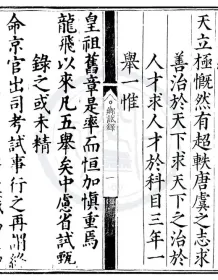 天立極慨然有超軼唐虞之思
善治於天下求天下之治於
人才求人才於科目三年一
舉一惟
皇祖舊章是率而恒加慎重焉
龍飛以來凡五舉矣中慮省試甄
錄之或未精
命京官出司考試事行之再